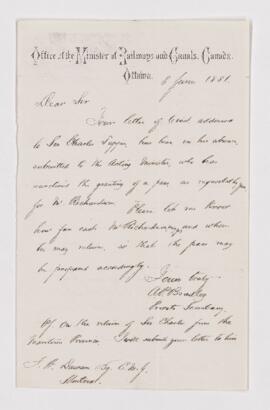 Office of the Minister of Railways and Canals, Canada.
Ottawa. 6 June 1881.
Dear Sir
Your letter of 3rd inst addressed
to Sir Charles Tupper, has been in his absence
submitted to the Acting Minister, who has
sanctioned the granting of a pass as requested by you
for Mr Richardson. Please let me know
how far each Mr Richardson and when
he may return, so that the pass may
be prepared accordingly.
Yours truly
A P Bradley
Private Secretary
P.S. On the return of Sir Charles from the
Maritime Provinces I will submit your letter to him
J. W. Dawson Esq. C.M.G.
Montreal